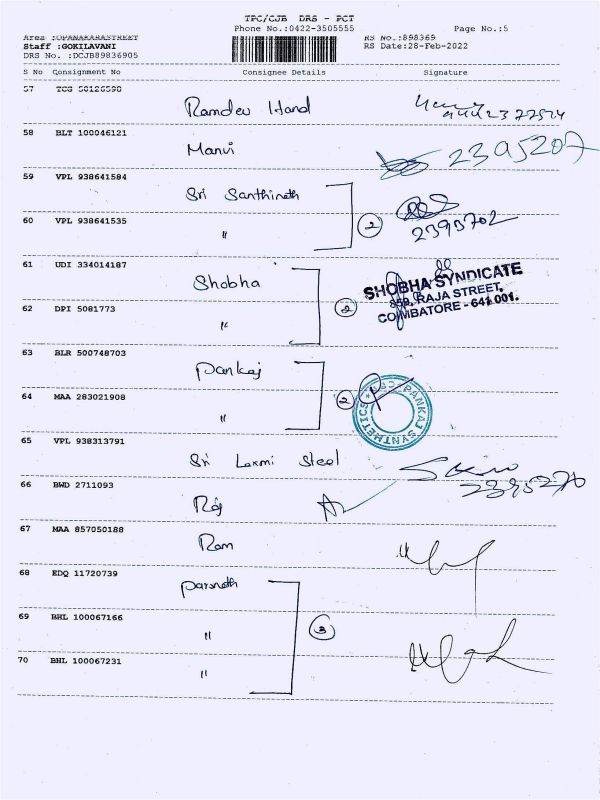 TPC/CJB DRS - PCT
Phone No.:0422-3505555 Page No.:5
Area :OPANAKARASTREET RS No.:898369
Staff :GOKILAVANI RS Date:28-Feb-2022
DRS No. :DCJB89836905
S No Consignment No Consignee Details Signature
57 TCG
Ramdev Hand
58 BLT 100046121
Manvi 2395207
59 VPL 938641584
Sri Santhinath
60 VPL 938641535 2 2393702
"
61 UDI 334014187
Shobha SHOBHA SYNDICATE
62 DPI 5081773 2 858, RAJA STREET,
" COIMBATORE - 641 001.
63 BLR 500748703
Pankaj
64 MAA 283021908 2 PANKAJ SYNTHETICS
"
65 VPL 938313791
Sri Laxmi Steel
66 BWD 2711093 2395270
Raj
67 MAA 857050188
Ram
68 EDQ 11720739
Parsnath
69 BHL 100067166
" 3
70 BNL 100067231
"